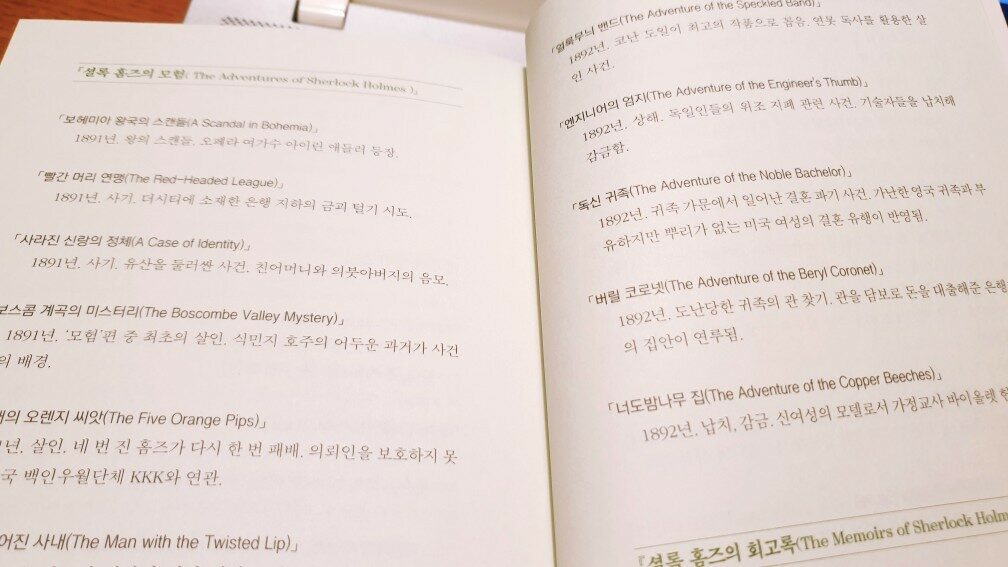 『셜록 홈즈의 모험( The Adventures of Sherlock Holmes )』
「보헤미아 왕국의 스캔들(A Scandal in Bohemia)」
1891년. 왕의 스캔들. 오페라 여가수 아이린 애들러 등장.
「빨간 머리 연맹(The Red-Headed League)」
1891년. 사기. 더시티에 소재한 은행 지하의 금괴 털기 시도.
「사라진 신랑의 정체(A Case of Identity)」
1891년. 사기. 유산을 둘러싼 사건. 친어머니와 의붓아버지의 음모.
보스콤 계곡의 미스터리(The Boscombe Valley Mystery)」
1891년. '모험'편 중 최초의 살인. 식민지 호주의 어두운 과거가 사건
의 배경.
의 오렌지 씨앗(The Five Orange Pips)」
년. 살인. 네 번 진 홈즈가 다시 한 번 패배. 의뢰인을 보호하지 못
국 백인우월단체 KKK와 연관.
어진 사내(The Man with the Twisted Lip)」
「얼룩무늬 밴드(The Adventure of the Speckled Band)」
1892년. 코난 도일이 최고의 작품으로 뽑음. 연못 독사를 활용한 살
인 사건.
「엔지니어의 엄지(The Adventure of the Engineer's Thumb)」
1892년. 상해. 독일인들의 위조 지폐 관련 사건. 기술자들을 납치해
감금함.
「독신 귀족(The Adventure of the Noble Bachelor)」
1892년. 귀족 가문에서 일어난 결혼 파기 사건. 가난한 영국 귀족과 부
유하지만 뿌리가 없는 미국 여성의 결혼 유행이 반영됨.
「버릴 코로넷(The Adventure of the Beryl Coronet)」
1892년. 도난당한 귀족의 관 찾기. 관을 담보로 돈을 대출해준 은행
의 집안이 연루됨.
「너도밤나무 집(The Adventure of the Copper Beeches)」
1892년. 납치, 감금. 신여성의 모델로서 가정교사 바이올렛
『셜록 홈즈의 회고록(The Memoirs of Sherlock Holm